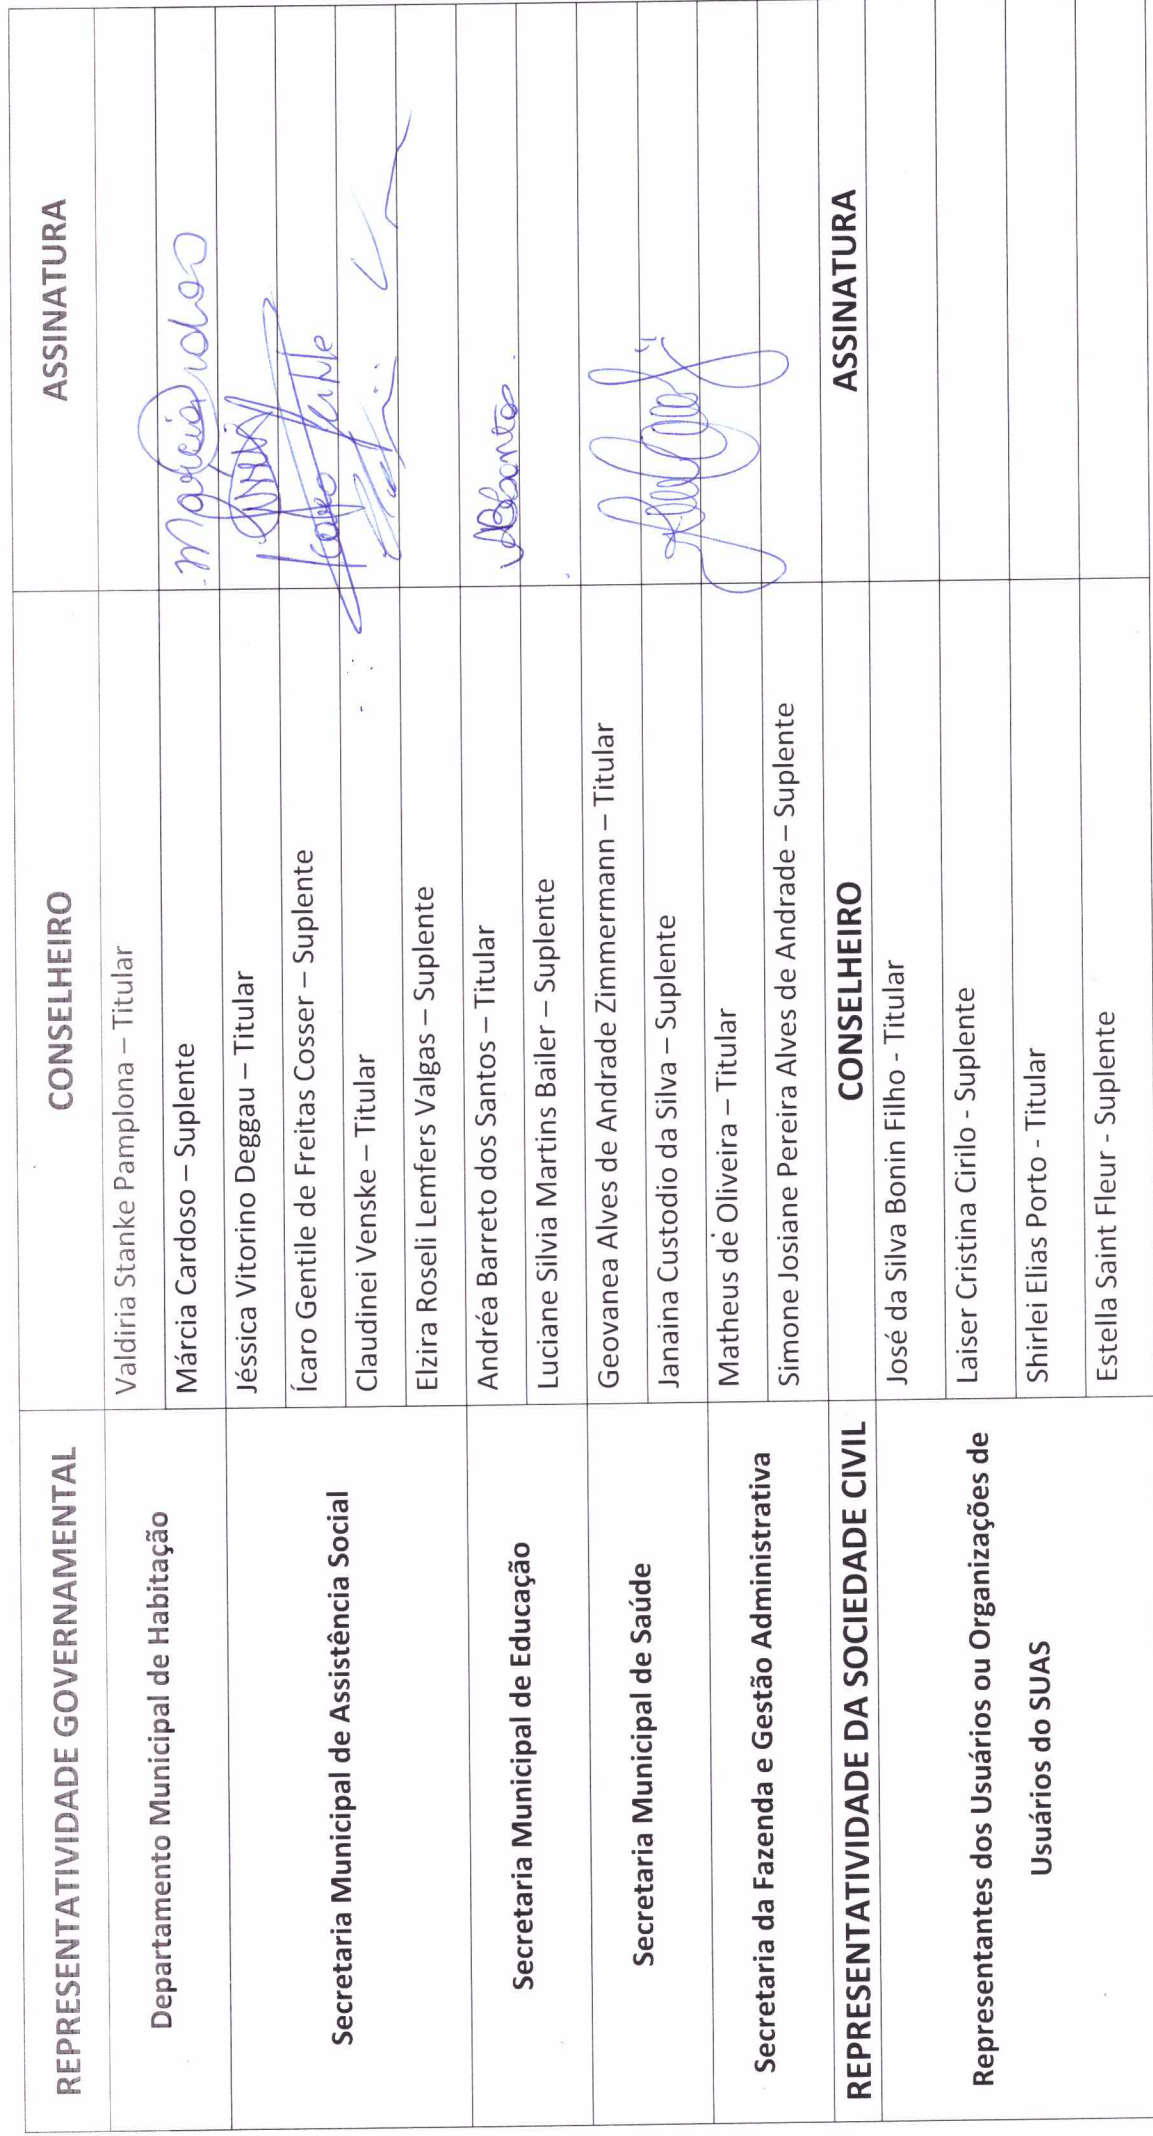 REPRESENTATIVIDADE GOVERNAMENTAL CONSELHEIRO ASSINATURA
Departamento Municipal de Habitação
Valdiria Stanke Pamplona – Titular
Márcia Cardoso – Suplente Marcia Cardoso
Secretaria Municipal de Assistência Social
Jéssica Vitorino Deggau – Titular
Ícaro Gentile de Freitas Cosser – Suplente Icaro Gentile
Claudinei Venske – Titular
Elzira Roseli Lemfers Valgas – Suplente
Secretaria Municipal de Educação
Andréa Barreto dos Santos – Titular ABSantos
Luciane Silvia Martins Bailer – Suplente
Secretaria Municipal de Saúde
Geovanea Alves de Andrade Zimmermann – Titular
Janaina Custodio da Silva – Suplente
Secretaria da Fazenda e Gestão Administrativa
Matheus de Oliveira – Titular
Simone Josiane Pereira Alves de Andrade – Suplente
REPRESENTATIVIDADE DA SOCIEDADE CIVIL CONSELHEIRO ASSINATURA
Representantes dos Usuários ou Organizações de
Usuários do SUAS
José da Silva Bonin Filho - Titular
Laiser Cristina Cirilo - Suplente
Shirlei Elias Porto - Titular
Estella Saint Fleur - Suplente